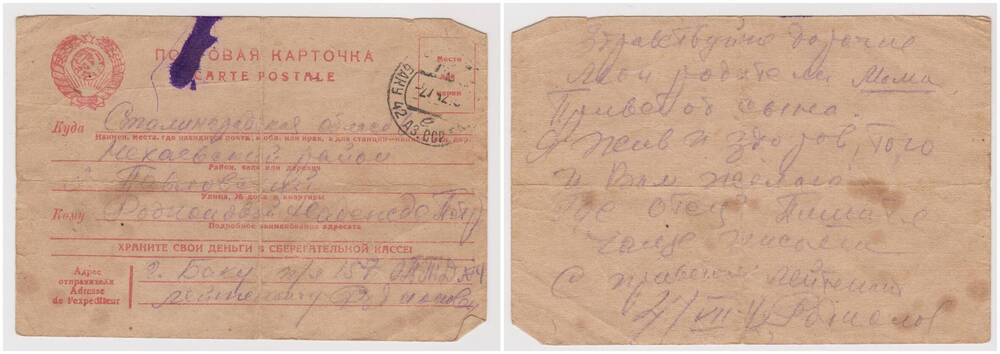 ПОЧТОВАЯ КАРТОЧКА
CARTE POSTALE
Место
для
марки
БАКУ 42 АЗ.ССР
Куда Сталинградская область
Наимен. места, где находится почта, и обл. или края, а для станции
район
Район, село или деревня
Улица, № дома и квартиры
Кому
Подробное наименование адресата
ХРАНИТЕ СВОИ ДЕНЬГИ В СБЕРЕГАТЕЛЬНОЙ КАССЕ!
Адрес
отправителя
Adresse
de l'expéditeur
г. Баку п/я 157
лейтенанту
Здравствуйте дорогие
мои родители Мама
Привет от сына.
Я жив и здоров, того
и Вам желаю
Где отец Пишите
чаще письма
С приветом лейтенант
27/VII 42